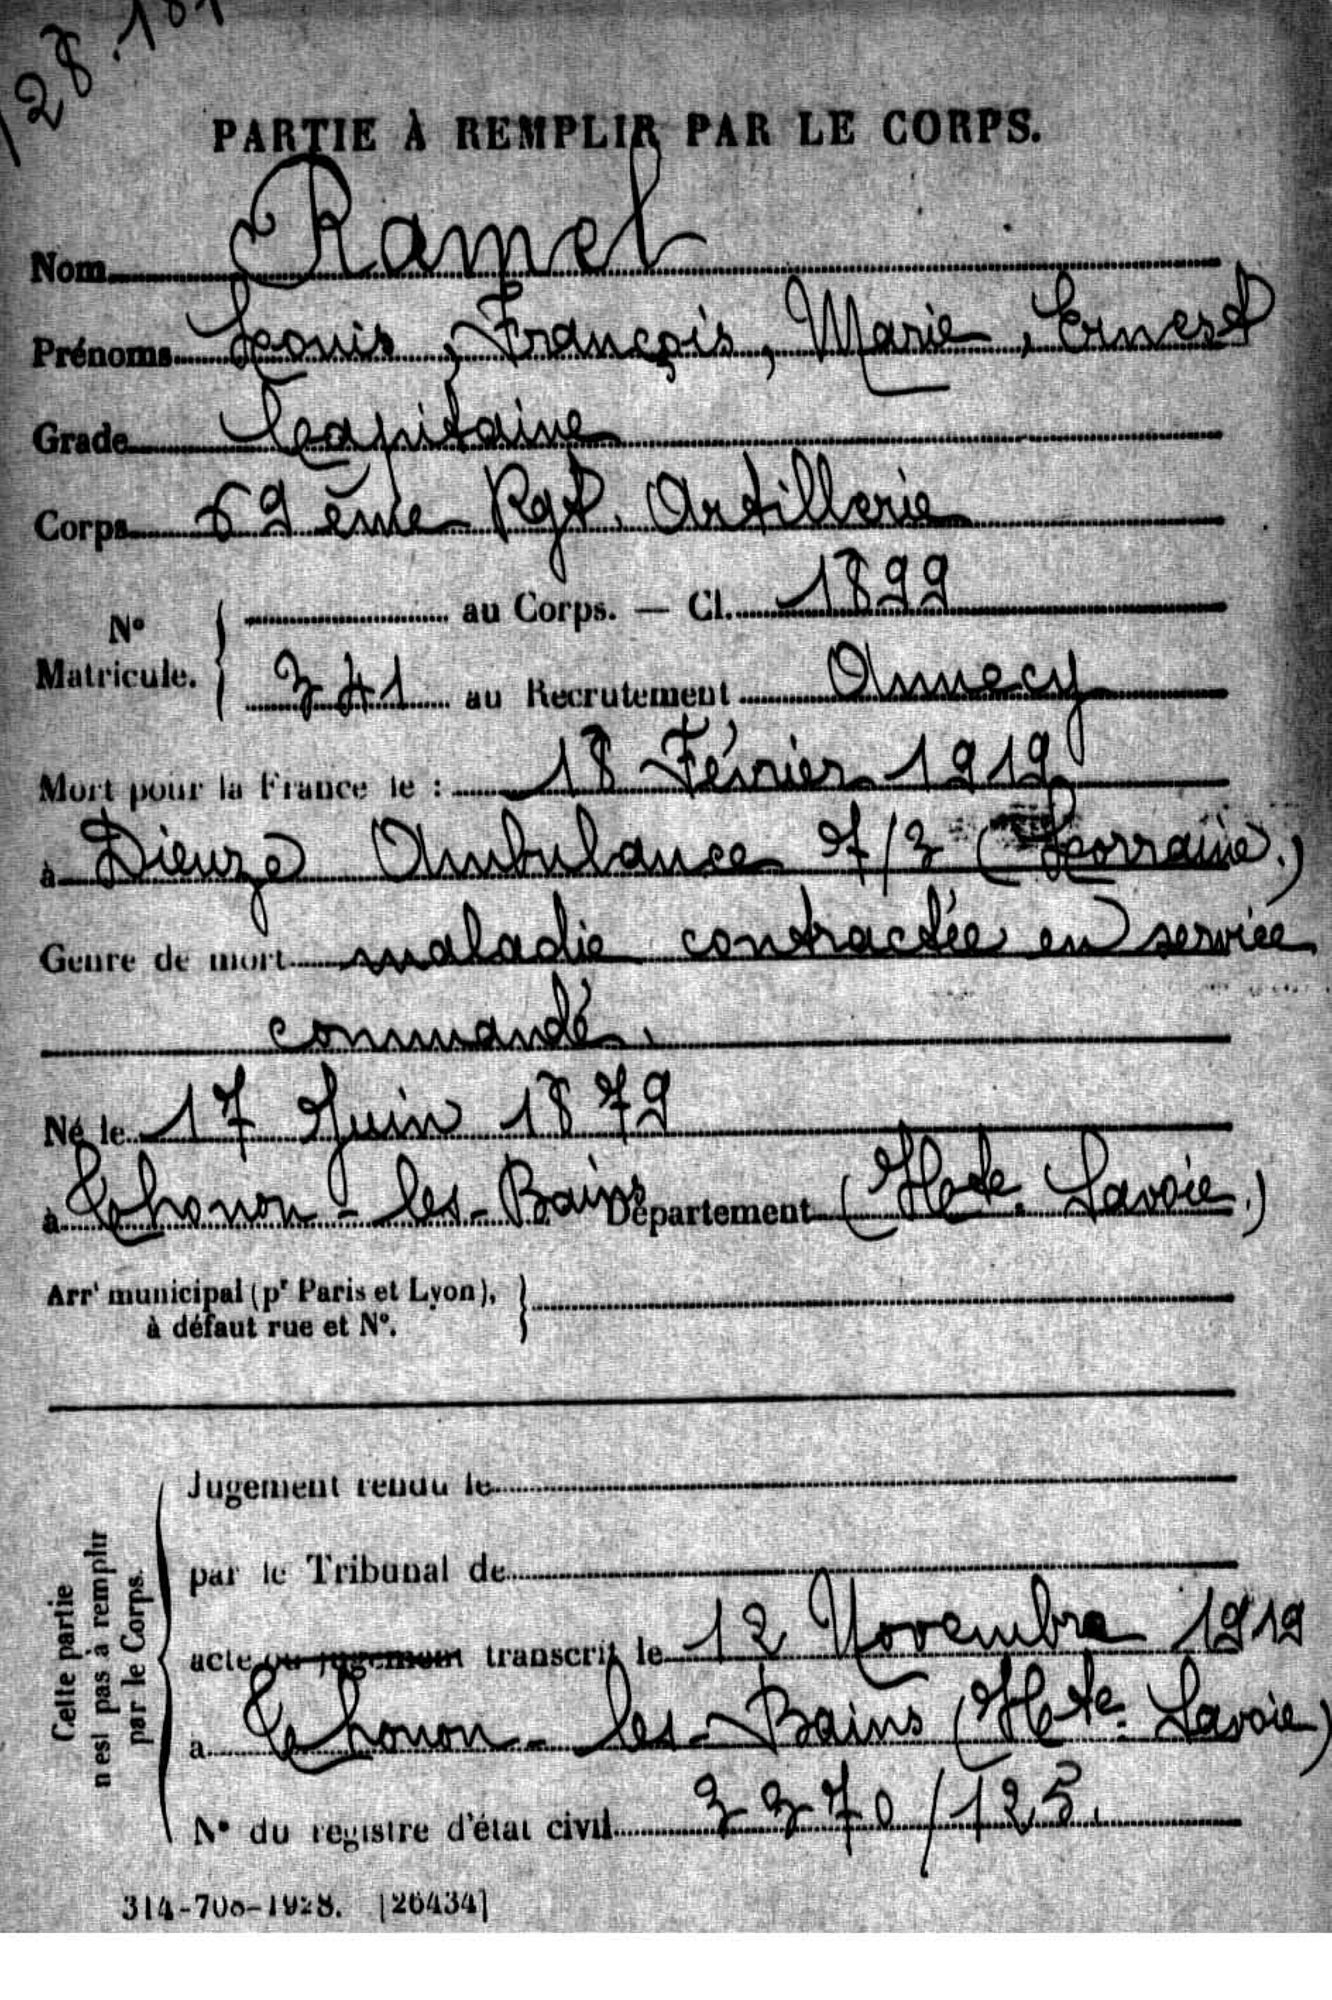 128.181
PARTIE À REMPLIR PAR LE CORPS.
Nom Ramel
Prénoms Louis, François, Marie, Ernest
Grade Capitaine
Corps 69 ème Rgt. Artillerie
N° Matricule. au Corps. — Cl. 1899
341 au Recrutement Annecy
Mort pour la France le : 18 Février 1919
à Dieuze Ambulance 7/3 (Lorraine.)
Genre de mort maladie contractée en service
commandé.
Né le 17 Juin 1879
à Thonon-les-Bains Département (Hte. Savoie.)
Arrt municipal (pr Paris et Lyon),
à défaut rue et N°.
Jugement rendu le
par le Tribunal de
acte ou jugement transcrit le 12 Novembre 1919
à Thonon-les-Bains (Hte. Savoie)
N° du registre d'état civil 3370/125.
Cette partie
n'est pas à remplir
par le Corps.
314-708-1928. [26434]